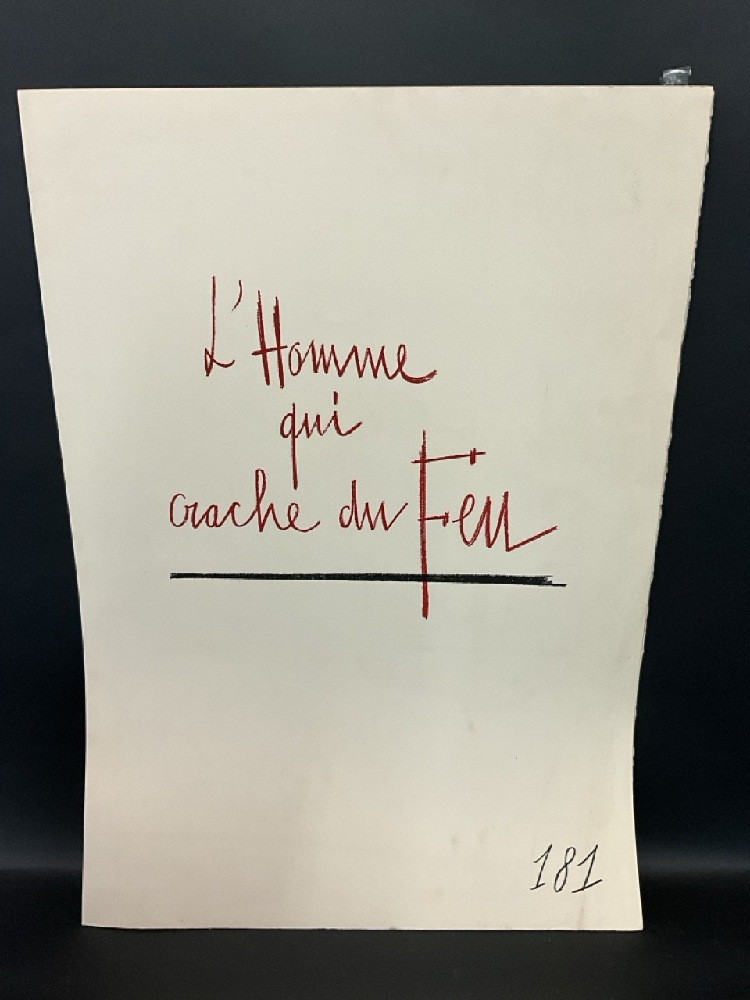 L'Homme
qui
crache du Feu
181